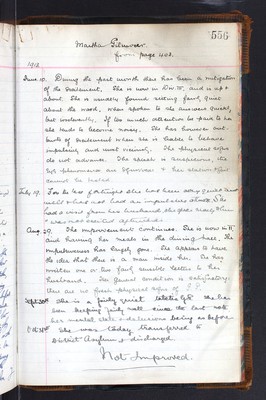 556
Martha Filmer
from page 402.
1918
June 10. During the past month there has been a mitigation
of the excitement. She is now in and is up &
about. She is usually found sitting fairly quiet
about the ward, when spoken to she answers quietly,
but irrelevantly. If too much attention be paid to her
she tends to become noisy. She has however out-
bursts of excitement when she is liable to become
impulsive and most The physical signs
do not advance. The speech is suspicious, the
phenomena are & her
cannot be tested
July 19. For the last fortnight she has been very quiet and
and has not had an impulsive attack. She
had a visit from her husband
& was not excited afterwards
Aug. 29. The improvement continues. She is now in
and having her meals in the dining-hall. The
impulsiveness has largely gone. She appears to have
the idea that there is a man inside her. She has
written one or two fairly sensible letters to her
husband. Her general condition is satisfactory.
There are no fresh physical signs of G.P.
Sept. 30th She is a fairly quiet she has
been keeping fairly well since the last note
her mental state & delusions being as before
Oct 31st She was today transferred to
District Asylum & discharged
Not Improved.